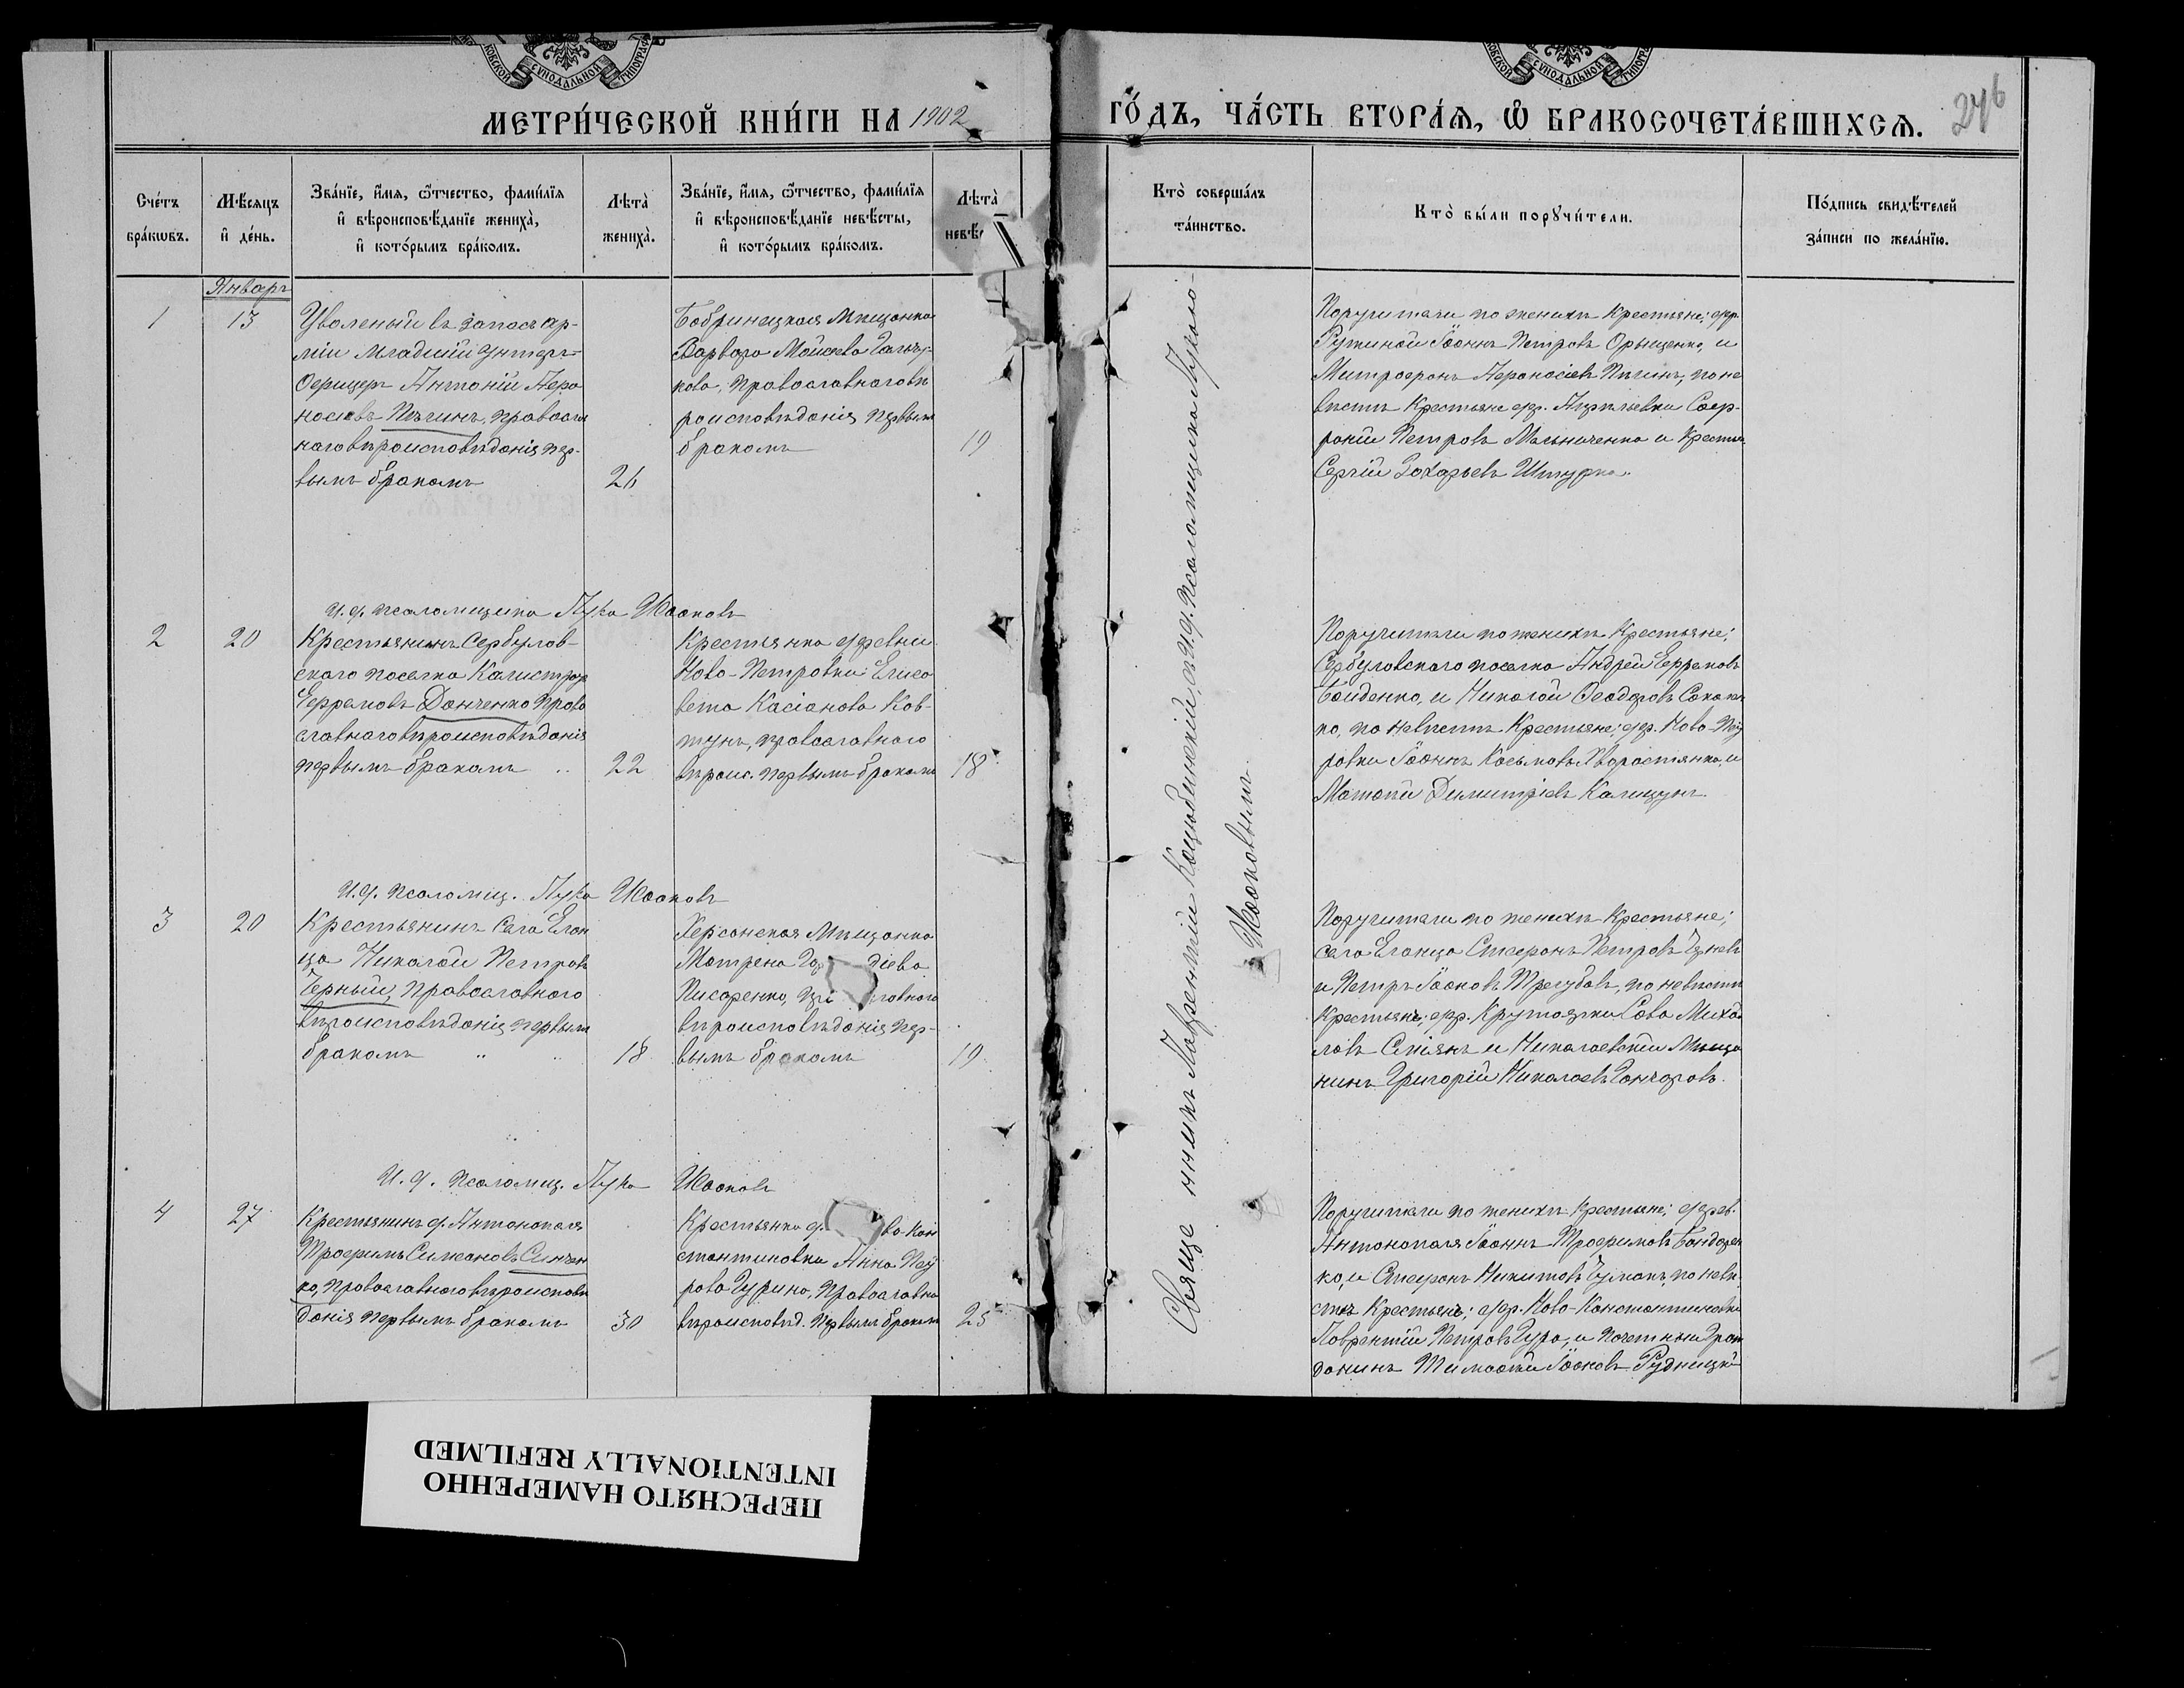 МЕТРИ́ЧЕСКОЙ КНИ́ГИ НА 1902
ГО́ДЪ, ЧА́СТЬ ВТОРА́Ѧ, Ѽ БРАКОСОЧЕТА́ВШИХСѦ.
276
Сче́тъ бра́кѡвъ.
Мѣ́сяцъ и҆ де́нь.
Зва́нїе, и҆́мѧ, ѻ҆́тчество, фами́лїѧ
и҆ вѣроисповѣ́данїе жениха̀,
и҆ кото́рымъ бра́комъ.
Лѣта̀ жениха̀.
Зва́нїе, и҆́мѧ, ѻ҆́тчество, фами́лїѧ
и҆ вѣроисповѣ́данїе невѣ́сты,
и҆ кото́рымъ бра́комъ.
Лѣта̀
Кто̀ соверша́лъ
та́инство.
Кто̀ бы́ли порꙋчи́тели.
По́дпись свидѣ́телей
за́писи по жела́нїю.
Январь
1
13
Уволеный въ запасъ ар-
міи младшій Унтеръ-
Офицеръ Антоній Афа
насіевъ Пѣгинъ, правосла
наго вѣроисповѣданія пер-
вымъ бракомъ
26
Бобринецкая Мѣщанка
Варвара Моисеева
кова, православнаго вѣ
роисповѣданія первым
бракомъ
19
Поручители по женихѣ Крестьяне; дер.
Іоаннъ Петровъ Орищенко, и
Митрофанъ Афанасіевъ Пѣгинъ, по не
вѣстѣ Крестьяне дер. Соф-
роній Петровъ Мельниченко и Крестья
Сергій Захарьевъ
И. д. псаломщика Лука Жооковъ
2
20
Крестьянинъ Сербулов-
скаго поселка Калистрат
Ефремовъ Данченко право
славнаго вѣроисповѣданія
первымъ бракомъ
22
Крестьянка деревни
Ново-Петровки Елиса
вета Касіанова Ков-
тунъ, православнаго
вѣроис. первымъ бракомъ
18
Поручители по женихѣ Крестьяне;
Сербуловскаго поселка Андрей Ефремовъ
Бойденко, и Николай Ѳеодоровъ
ко, по невѣстѣ Крестьяне; дер. Ново-Пет
ровки Іоаннъ Косьмовъ Хворостянко, и
Матѳей Димитріевъ Калищукъ
И. д. псаломщ. Лука Жооковъ
3
20
Крестьянинъ села Елан
ца Николай Петровъ
Черный, православнаго
вѣроисповѣданія первым
бракомъ
18
Херсонская Мѣщанка
Матрена Гор діева
Писаренко, пр славнаго
вѣроисповѣданія пер-
вымъ бракомъ
19
Поручители по женихѣ Крестьяне;
села Еланца Стефанъ Петровъ
и Петръ Іаковъ Трегубовъ, по невѣстѣ
Крестьянъ; дер. Крутоярки Сава Михай
ловъ и Николаевскій Мѣща
нинъ Григорій Николаевъ Гончаровъ.
И. д. псаломщ. Лука Жооковъ
4
27
Крестьянинъ д. Антонополя
Трофимъ Симеоновъ Синчен
ко, православнаго вѣроисповѣ
данія первымъ бракомъ
30
Крестьянка д. во-Кон
стантиновки Анна Пет
рова Гурина, православна
вѣроисповѣд. первымъ бракомъ
25
Поручители по женихѣ Крестьяне; дерев.
Антонополя Іоаннъ Трофимовъ Бондарен
ко, и Стефанъ Никитовъ Чумакъ, по невѣ
стѣ Крестьянъ; дер. Ново-Константиновки
Лаврентій Петровъ Гура, и почетный Граж
данинъ Тимоѳей Іаковъ Рудницкій
Свяще нникъ Лаврентій Коцюбинскій, съ и. д. псаломщика Лукою
Жооковымъ.
ПЕРЕСНЯТО НАМЕРЕННО
INTENTIONALLY REFILMED